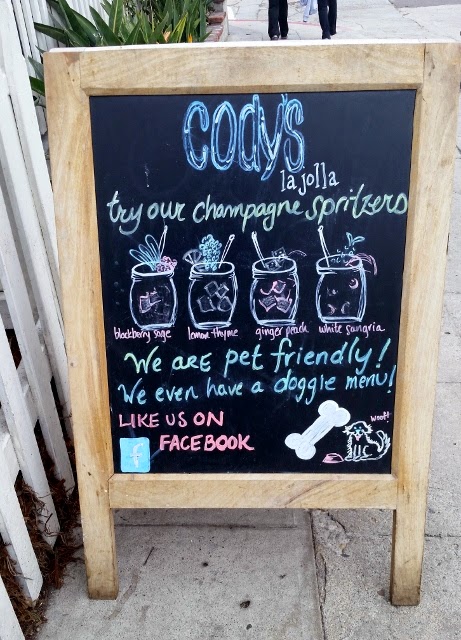 Cody's
la jolla
try our champagne spritzers
blackberry sage lemon thyme ginger peach white sangria
We are pet friendly!
We even have a doggie menu!
LIKE US ON
f FACEBOOK
woof!